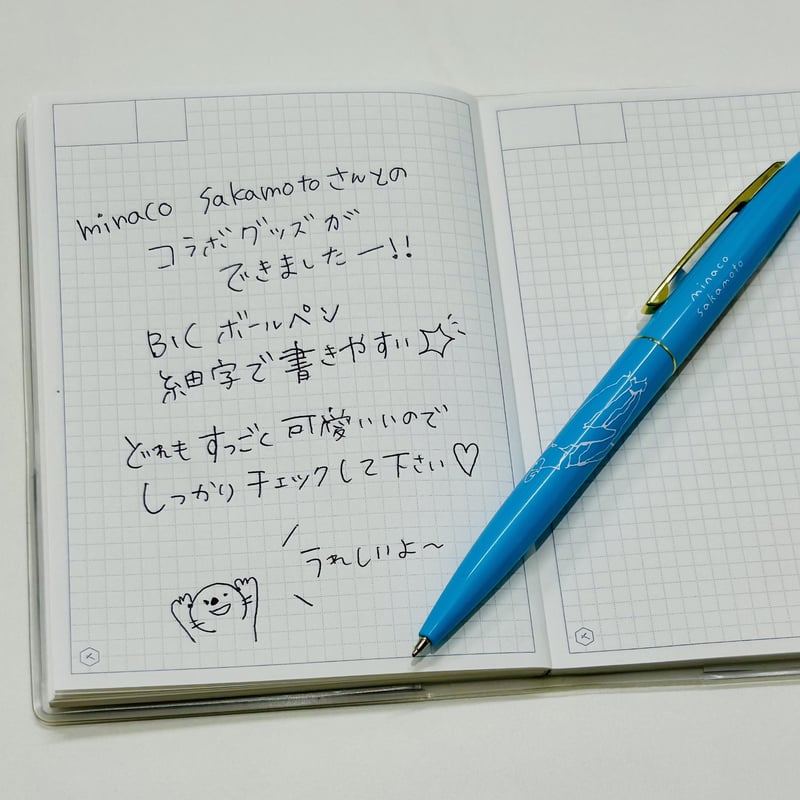 minaco sakamotoさんとの
コラボグッズが
できましたー!!
BIC ボールペン
細字で書きやすい☆
どれもすっごく可愛いいので
しっかりチェックして下さい♡
うれしいよ〜
minaco
sakamoto